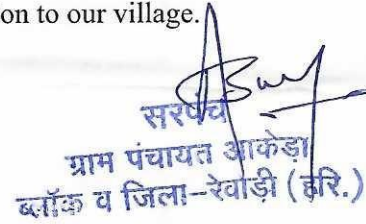 on to our village.
सरपंच
ग्राम पंचायत आकेड़ा
ब्लॉक व जिला-रेवाड़ी (हरि.)